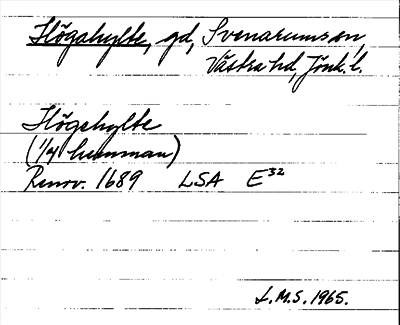 Högahylte, gd, Svenarums sn,
Västra hd, Jönk. l.
Högehylte
(1/4 hemman)
Renov. 1689 LSA E32
L.M.S. 1965.